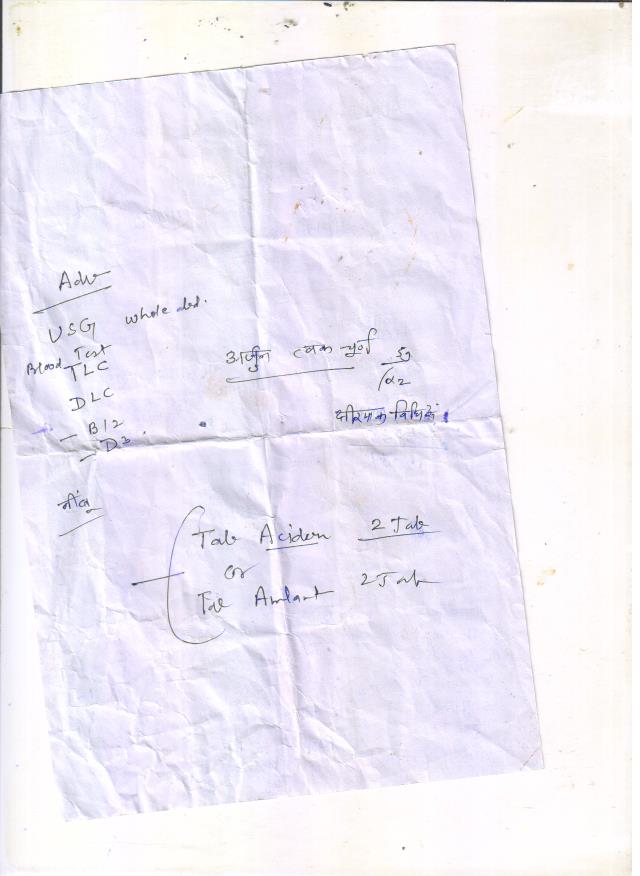 Adv
USG whole abd.
Blood Test
TLC
DLC
- B12
- D3.
अर्जुन त्वक चूर्ण
क्षीरपाक विधि से
नींबू
Tab Acidem 2 Tab
or
Tab Amlant 2 Tab